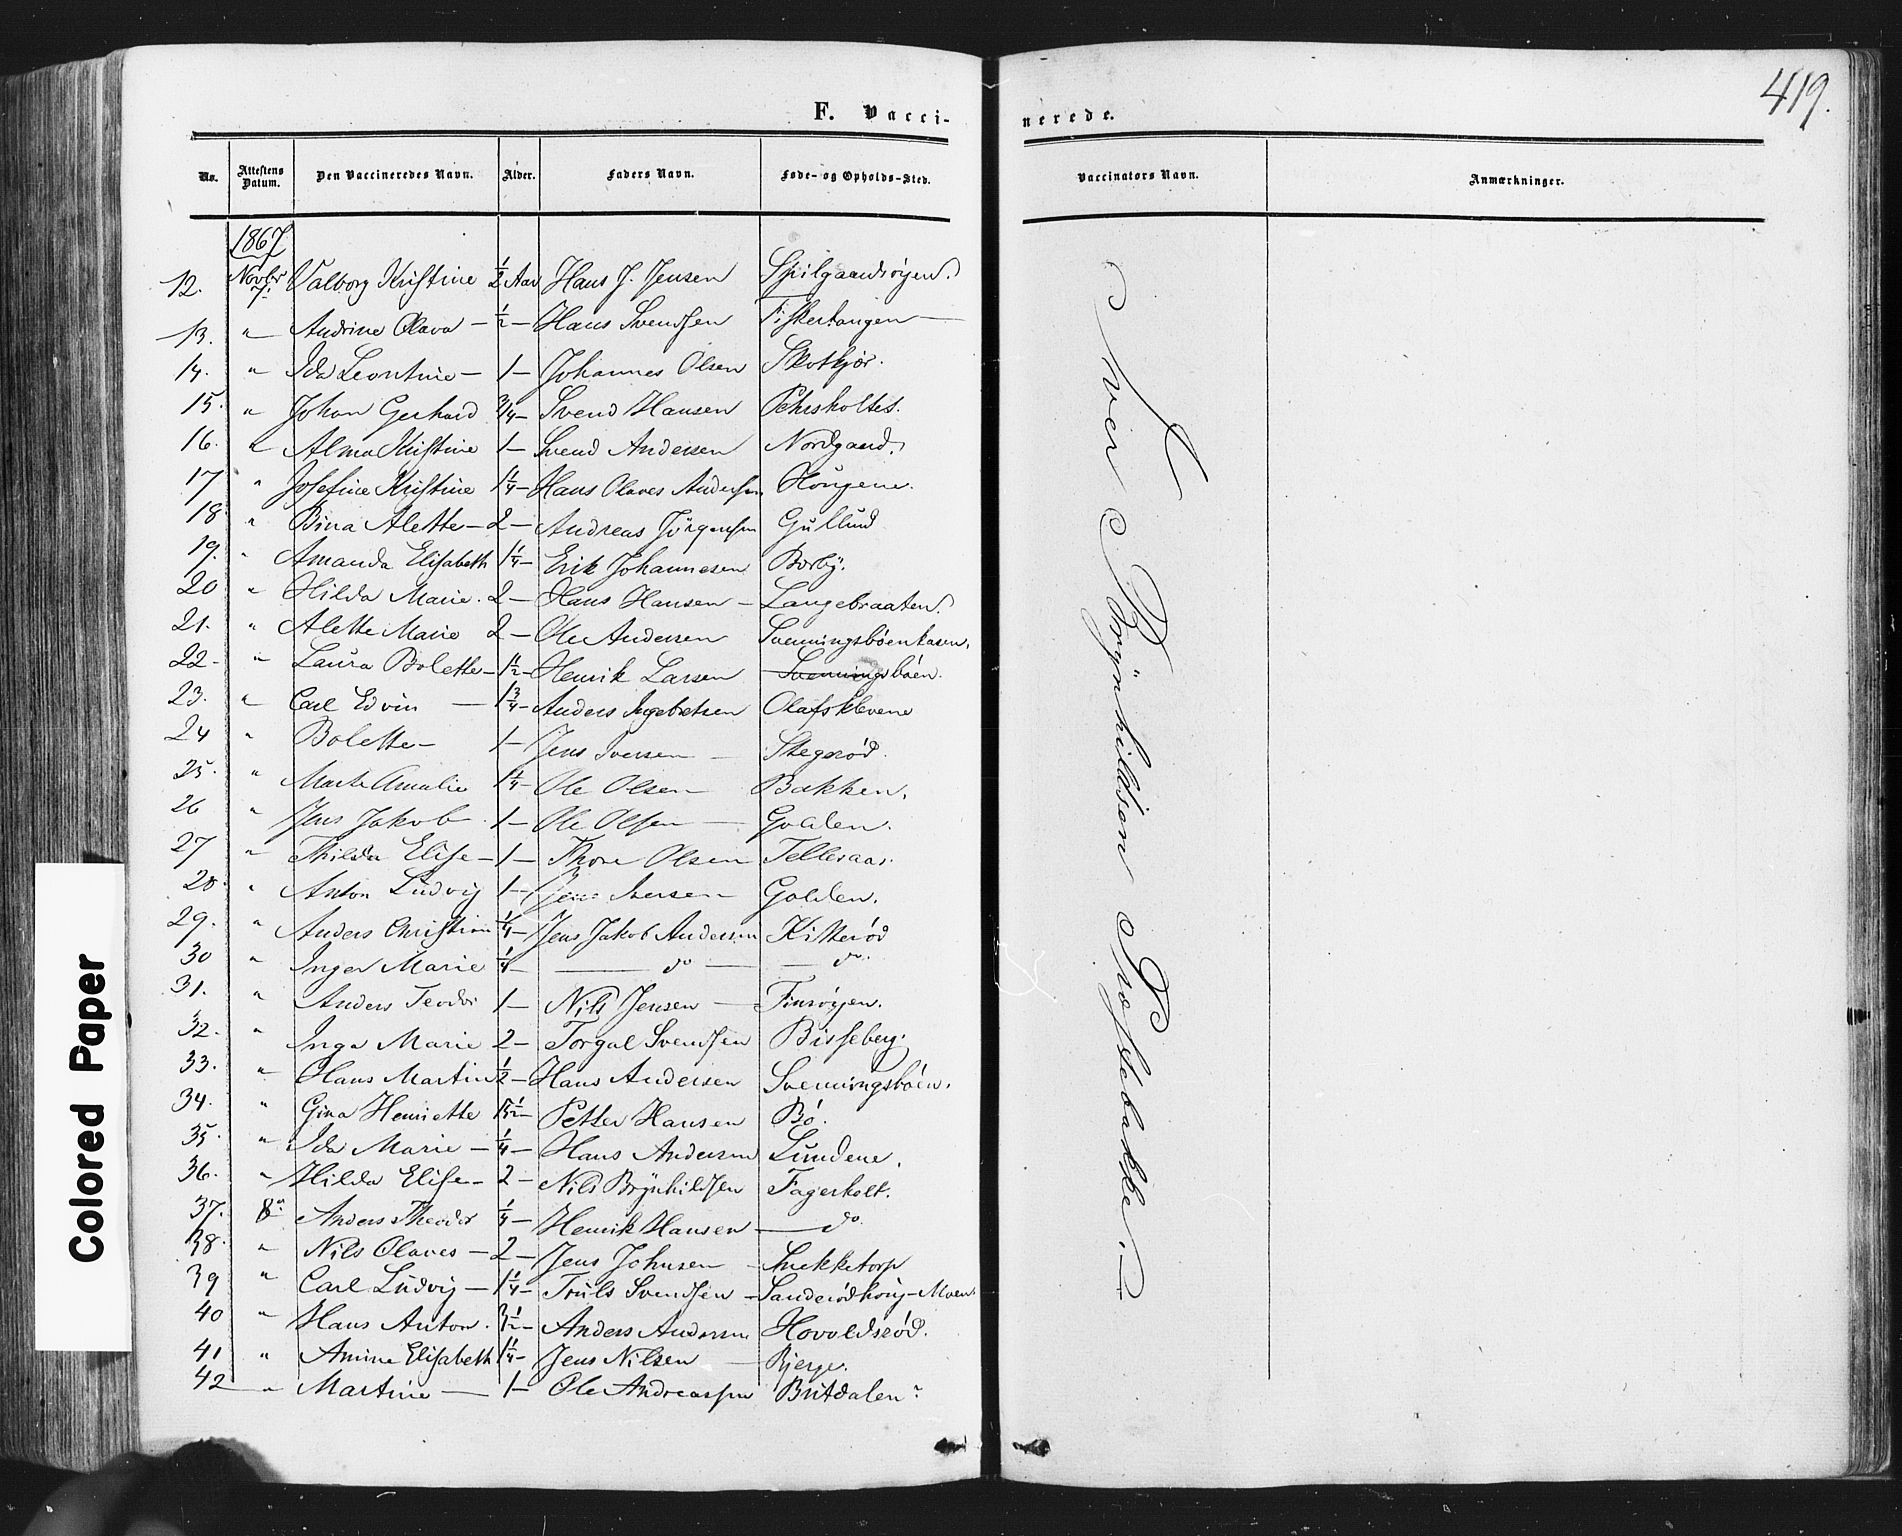 419.
F. Vacci-
nerede.
No. Attestens Datum. Den Vaccineredes Navn. Alder. Faders Navn. Føde- og Opholds-Sted. Vaccinators Navn. Anmærkninger.
1867
12. Novbr 7. Valborg Kristine ½ Aar Hans J. Jensen
13. " Andrine Olava – ½ – Hans Svendsen Fiskertangen –
14. " Ida Leontine – 1 – Johannes Olsen Skotkjær.
15. " Johan Gerhard ¾ – Svend Hansen Pehrsholtet.
16. " Alma Kristine 1 – Svend Andersen Nordgaard.
17 " Josefine Kristine 1¼ – Hans Olaves Andersen Hougene.
18 " Bina Alette – 2 – Andreas Jörgensen Gullund
19. " Amanda Elisabeth 1¼ – Erik Johannesen Borby.
20 " Hilda Marie. 2 – Hans Hansen – Langebraaten.
21. " Alette Marie 2 – Ole Andersen Svenningsbøenkasen.
22 – " Laura Bolette – 1½ – Henrik Larsen Svenningsbøen.
23. " Carl Edvin – 1¾ – Anders Ingebretsen Olafsklevene
24 " Bolette – 1 – Jens Iversen – Stegsrød.
25. " Marte Amalie 1¼ – Ole Olsen – Bakken.
26 " Jens Jakob 1 – Ole Olsen – Golden.
27 " Thilda Elise – 1 – Thore Olsen Telleraas.
28 " Anton Ludvig 1 – Jens Iversen – Golden.
29. " Anders Christian ¼ – Jens Jakob Andersen Kitterød
30 " Inger Marie ¼ – – do – – do.
31. " Anders Teodor 1 – Nils Jensen – Finsrøyen.
32. " Inga Marie 2 – Torgal Svendsen Bisseberg.
33. " Hans Martin ½ – Hans Andersen Svenningsbøen.
34. " Gina Henriette ½ – Petter Hansen Bø.
35. " Ida Marie – ¼ – Hans Andersen Lundene.
36. " Hilda Elise – 2 – Nils Brynhildsen Fagerholt.
37. 8de Anders Theodor ¼ – Henrik Hansen – do.
38. " Nils Olaves – 2 – Jens Johnsen – Snekketorp
39 " Carl Ludvig – 1¼ – Truls Svendsen – Sanderødhoug-Moen.
40 " Hans Anton. ½ – Anders Andersen Hovoldsrød.
41 " Amine Elisabeth 1¼ – Jens Nilsen – Bjerge.
42 " Martine – 1 – Ole Andreassen Butdalen.
Iver Brynhildsen Præstebakke.
Colored Paper